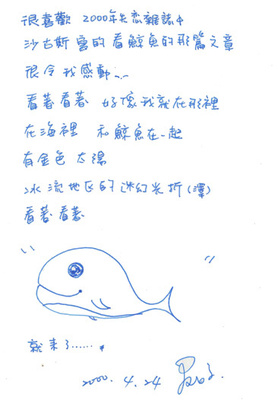 很喜歡 2000年 雜誌中
沙古斯 寫的 看鯨魚的那篇文章
很令我感動...
看著看著 好像我就在那裡
在海裡 和鯨魚在一起
有金色 太陽
冰流地区的 迷幻光折(澤)
看著看著
就來了......
2000. 4. 24